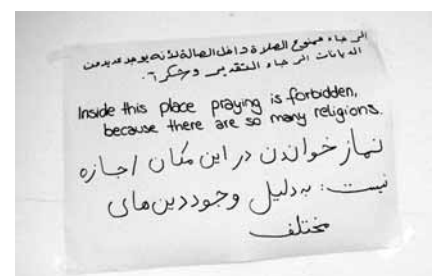 الرجاء ممنوع الصلاة داخل الصالة لأنه يوجد عديد من
الديانات الرجاء التقدير وشكرآ.
Inside this place praying is forbidden,
because there are so many religions.
نماز خواندن در این مکان اجازه
نیست: به دلیل وجود دین های
مختلف